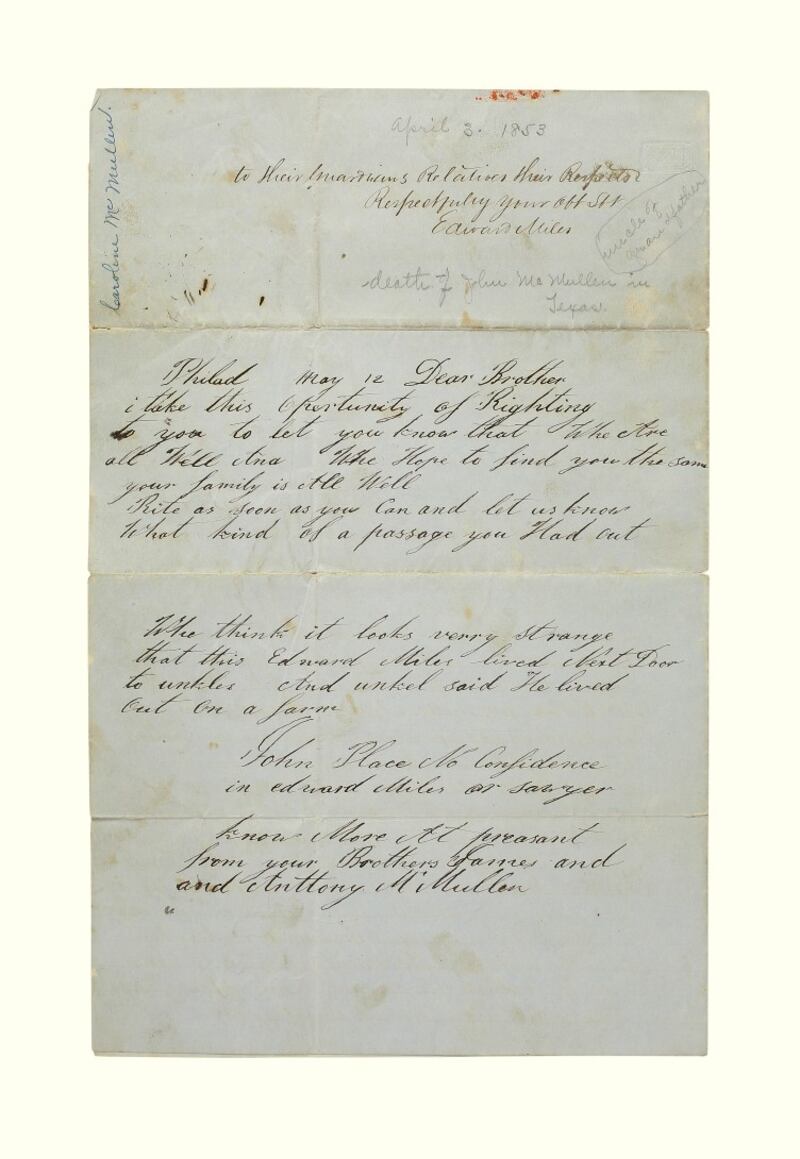 Caroline Mc Mullen.
April 3. 1853
to their Guardians Relatives their Respects
Respectfully your Obt St
Edward Miles
uncle of
Grandfather
death of John McMullen in
Texas.
Philad May 12 Dear Brother
i take this Oportunity of Righting
to you to let you know that Whe Are
all Well And Whe Hope to find you the same
your family is All Well
Rite as soon as you Can and let us know
What kind Of a passage you Had out
Whe think it looks verry strange
that this Edward Miles lived Next Door
to unkles And unkel said He lived
Out On a farm
John Place No Confidence
in edward Miles or sawyer
know More At preasant
from your Brothers James and
and Anttony McMullen